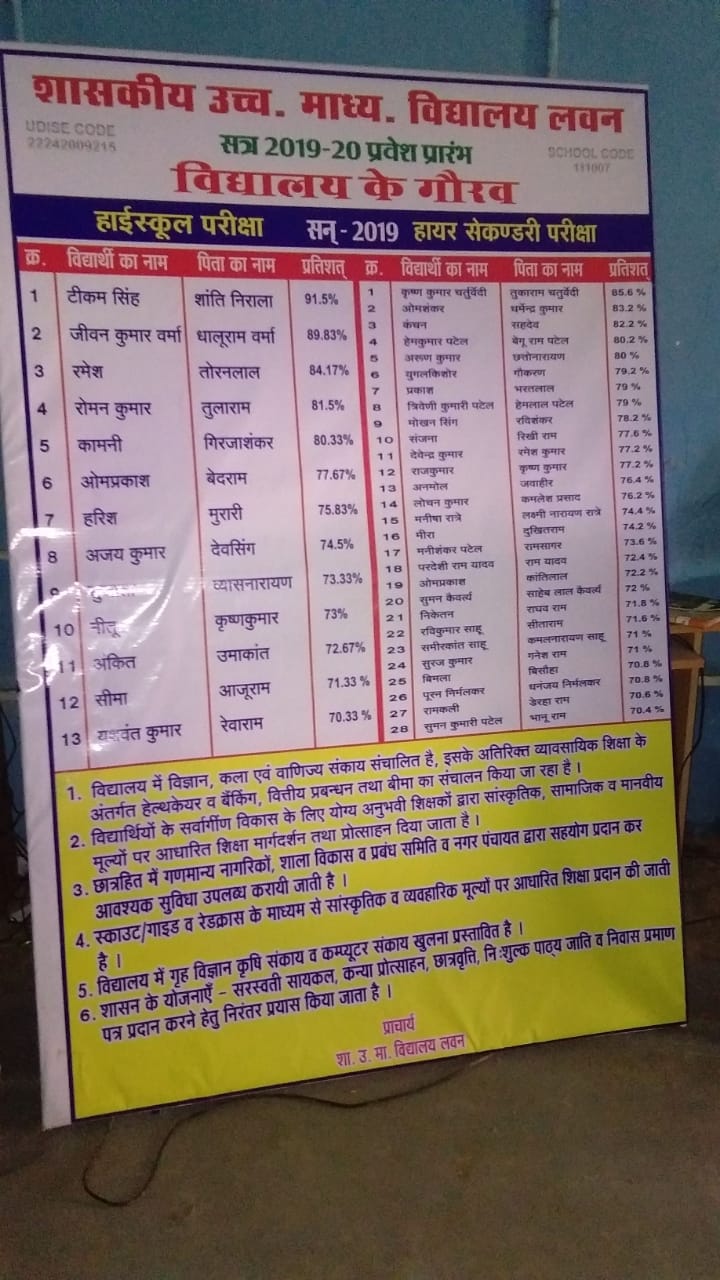 शासकीय उच्च. माध्य. विद्यालय लवन
UDISE CODE
22242009215
सत्र 2019-20 प्रवेश प्रारंभ
SCHOOL CODE
111007
विद्यालय के गौरव
हाईस्कूल परीक्षा सन् - 2019 हायर सेकण्डरी परीक्षा
क्र. विद्यार्थी का नाम पिता का नाम प्रतिशत्
1 टीकम सिंह शांति निराला 91.5%
2 जीवन कुमार वर्मा धालूराम वर्मा 89.83%
3 रमेश तोरनलाल 84.17%
4 रोमन कुमार तुलाराम 81.5%
5 कामनी गिरजाशंकर 80.33%
6 ओमप्रकाश बेदराम 77.67%
7 हरिश मुरारी 75.83%
8 अजय कुमार देवसिंग 74.5%
9 व्यासनारायण 73.33%
10 नीतू कृष्णकुमार 73%
11 अंकित उमाकांत 72.67%
12 सीमा आजूराम 71.33 %
13 यशवंत कुमार रेवाराम 70.33 %
क्र. विद्यार्थी का नाम पिता का नाम प्रतिशत्
1 कृष्ण कुमार चतुर्वेदी तुकाराम चतुर्वेदी 85.6 %
2 ओमशंकर धर्मेन्द्र कुमार 83.2 %
3 कंचन सहदेव 82.2 %
4 हेमकुमार पटेल बेगू राम पटेल 80.2 %
5 अरूण कुमार छत्तोनारायण 80 %
6 युगलकिशोर गौकरण 79.2 %
7 प्रकाश भरतलाल 79 %
8 त्रिवेणी कुमारी पटेल हेमलाल पटेल 79 %
9 मोखन सिंग रविशंकर 78.2 %
10 संजना रिखी राम 77.6 %
11 देवेन्द्र कुमार रमेश कुमार 77.2 %
12 राजकुमार कृष्ण कुमार 77.2 %
13 अनमोल जवाहीर 76.4 %
14 लोचन कुमार कमलेश प्रसाद 76.2 %
15 मनीषा रात्रे लक्ष्मी नारायण रात्रे 74.4 %
16 मीरा दुखितराम 74.2 %
17 मनीशंकर पटेल रामसागर 73.6 %
18 परदेशी राम यादव राम यादव 72.4 %
19 ओमप्रकाश कांतिलाल 72.2 %
20 सुमन कैवर्त्य साहेब लाल कैवर्त्य 72 %
21 निकेतन राघव राम 71.8 %
22 रविकुमार साहू सीताराम 71.6 %
23 समीरकांत साहू कमलनारायण साहू 71 %
24 सुरज कुमार गनेश राम 71 %
25 बिमला बिसौहा 70.8 %
26 पूरन निर्मलकर धनंजय निर्मलकर 70.8 %
27 रामकली डेरहा राम 70.6 %
28 सुमन कुमारी पटेल भानू राम 70.4 %
1. विद्यालय में विज्ञान, कला एवं वाणिज्य संकाय संचालित है, इसके अतिरिक्त व्यावसायिक शिक्षा के
अंतर्गत हेल्थकेयर व बैंकिंग, वित्तीय प्रबन्धन तथा बीमा का संचालन किया जा रहा है ।
2. विद्यार्थियों के सर्वार्गीण विकास के लिए योग्य अनुभवी शिक्षकों द्वारा सांस्कृतिक, सामाजिक व मानवीय
मूल्यों पर आधारित शिक्षा मार्गदर्शन तथा प्रोत्साहन दिया जाता है ।
3. छात्रहित में गणमान्य नागरिकों, शाला विकास व प्रबंध समिति व नगर पंचायत द्वारा सहयोग प्रदान कर
आवश्यक सुविधा उपलब्ध करायी जाती है ।
4. स्काउट/गाइड व रेडक्रास के माध्यम से सांस्कृतिक व व्यवहारिक मूल्यों पर आधारित शिक्षा प्रदान की जाती
है ।
5. विद्यालय में गृह विज्ञान कृषि संकाय व कम्प्यूटर संकाय खुलना प्रस्तावित है ।
6. शासन के योजनाएँ - सरस्वती सायकल, कन्या प्रोत्साहन, छात्रवृत्ति, निःशुल्क पाठ्य जाति व निवास प्रमाण
पत्र प्रदान करने हेतु निरंतर प्रयास किया जाता है ।
प्राचार्य
शा. उ. मा. विद्यालय लवन